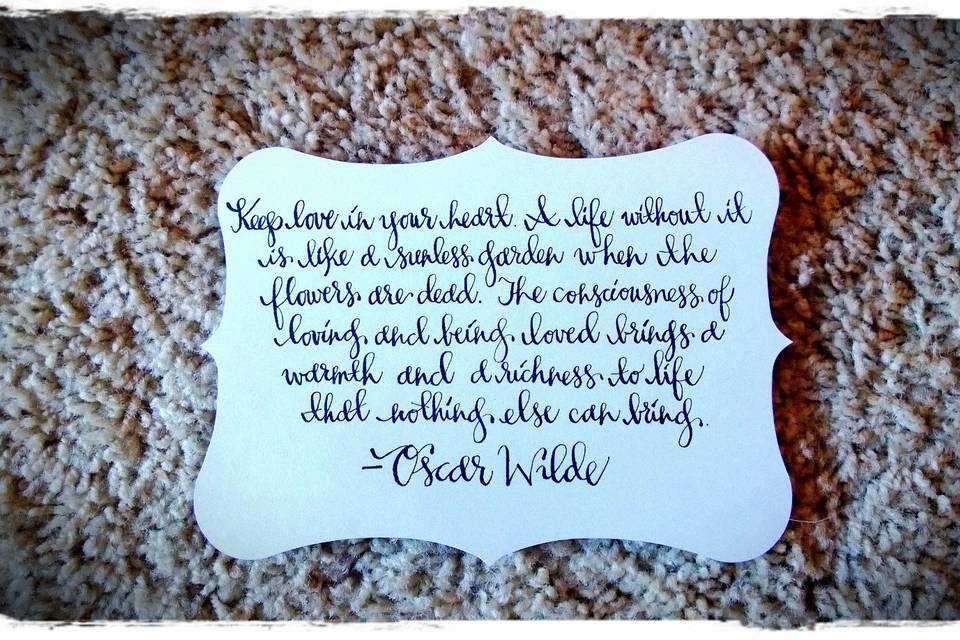 Keep love in your heart. A life without it
is like a sunless garden when the
flowers are dead. The consciousness of
loving and being loved brings a
warmth and a richness to life
that nothing else can bring.
- Oscar Wilde